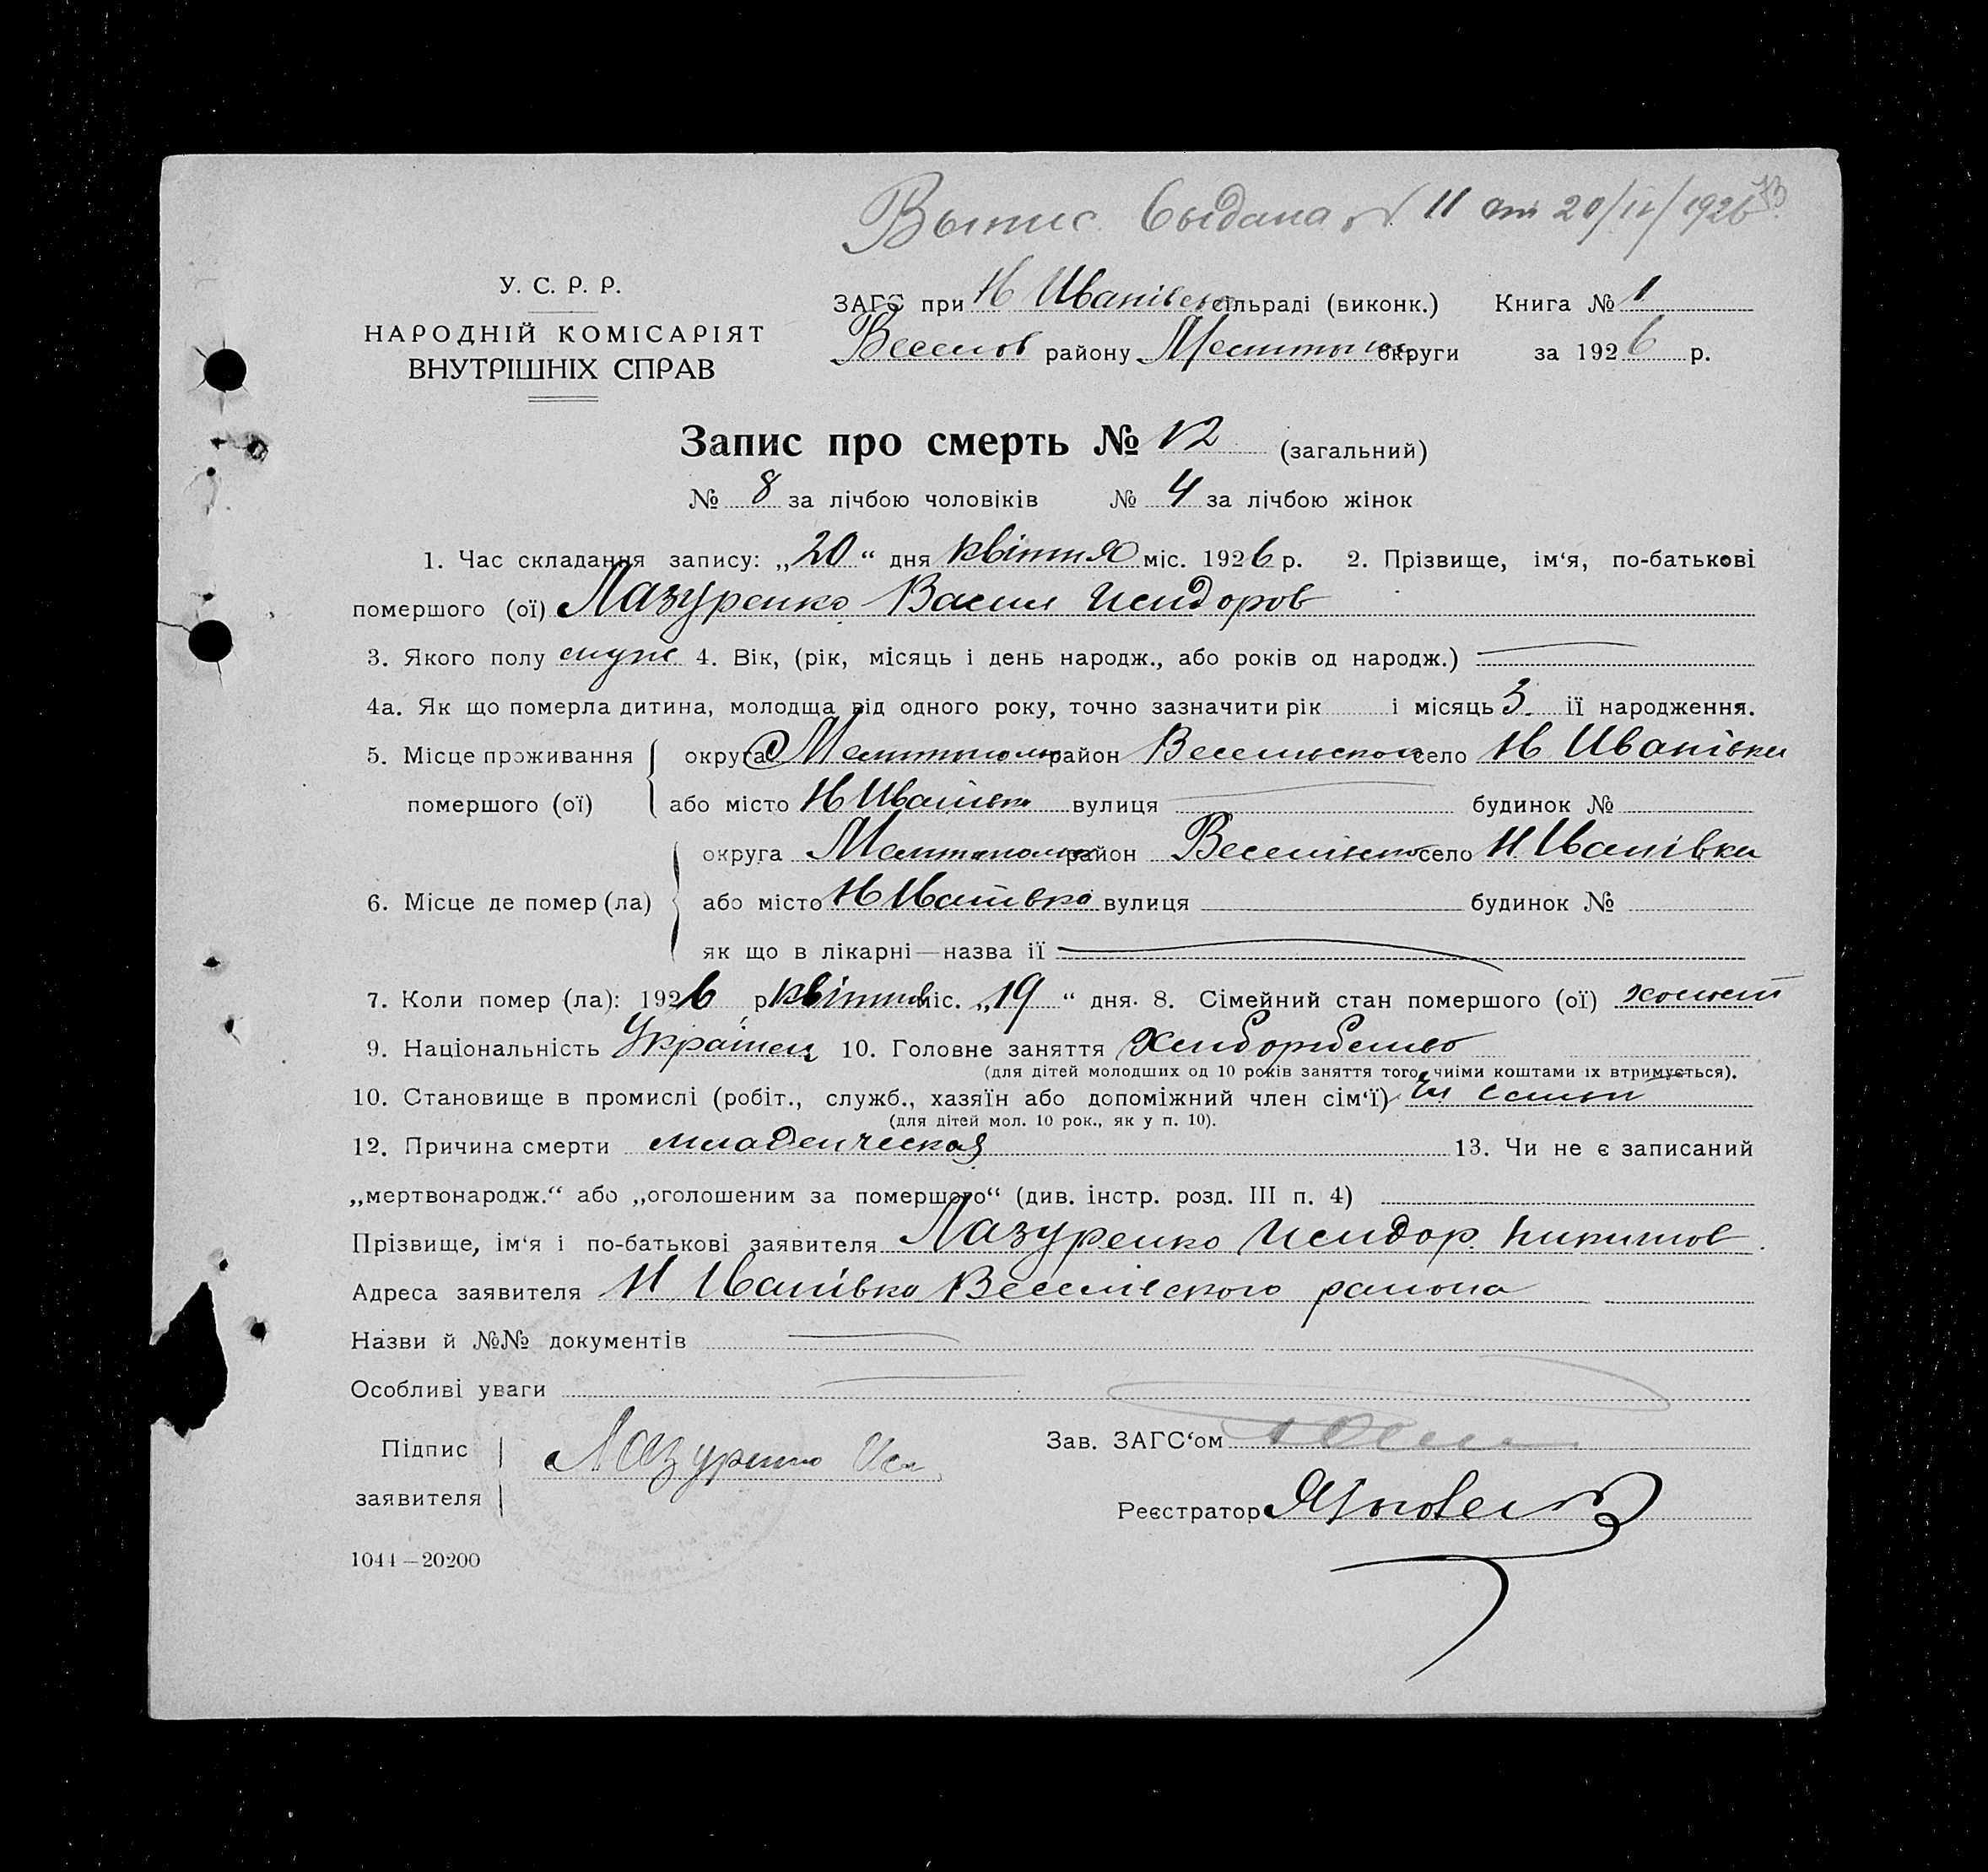 Выпис выдана № 11 от 20/IV/1926
73
У. С. Р. Р.
НАРОДНІЙ КОМІСАРІЯТ
ВНУТРІШНІХ СПРАВ
ЗАГС при Н Иванівськ сільраді (виконк.) Книга № 1
Веселов району Мелітопол округи за 1926 р.
Запис про смерть № 12 (загальний)
№ 8 за лічбою чоловіків № 4 за лічбою жінок
1. Час складання запису: „20“ дня квітня міс. 1926 р. 2. Прізвище, ім‘я, по-батькові
помершого (ої) Лазуренко Васил Исидоров
3. Якого полу муж 4. Вік, (рік, місяць і день народж., або років од народж.)
4а. Як що померла дитина, молодща від одного року, точно зазначити рік і місяць 3. її народження.
5. Місце проживання округа Мелитополь район Веселовском село Н Иванівки
помершого (ої) або місто Н Иванівка вулиця будинок №
округа Мелитополь район Веселівско село Н. Иванівки
6. Місце де помер (ла) або місто Н Иванівка вулиця будинок №
як що в лікарні—назва її
7. Коли помер (ла): 1926 р квітня міс. „19“ дня. 8. Сімейний стан помершого (ої) холост
9. Національність Українец 10. Головне заняття Хлиборобство
(для дітей молодших од 10 років заняття того, чиїми коштами їх втримується).
10. Становище в промислі (робіт., служб., хазяїн або допоміжний член сім‘ї) Чл семьи
(для дітей мол. 10 рок., як у п. 10).
12. Причина смерти младенческая 13. Чи не є записаний
„мертвонародж.“ або „оголошеним за помершого“ (див. інстр. розд. III п. 4)
Прізвище, ім‘я і по-батькові заявителя Лазуренко Исидор Никитов
Адреса заявителя Н Иванівка Веселівского района
Назви й №№ документів
Особливі уваги
Підпис заявителя Лазуренко Иси
Зав. ЗАГС‘ом
Реєстратор
1044—20200